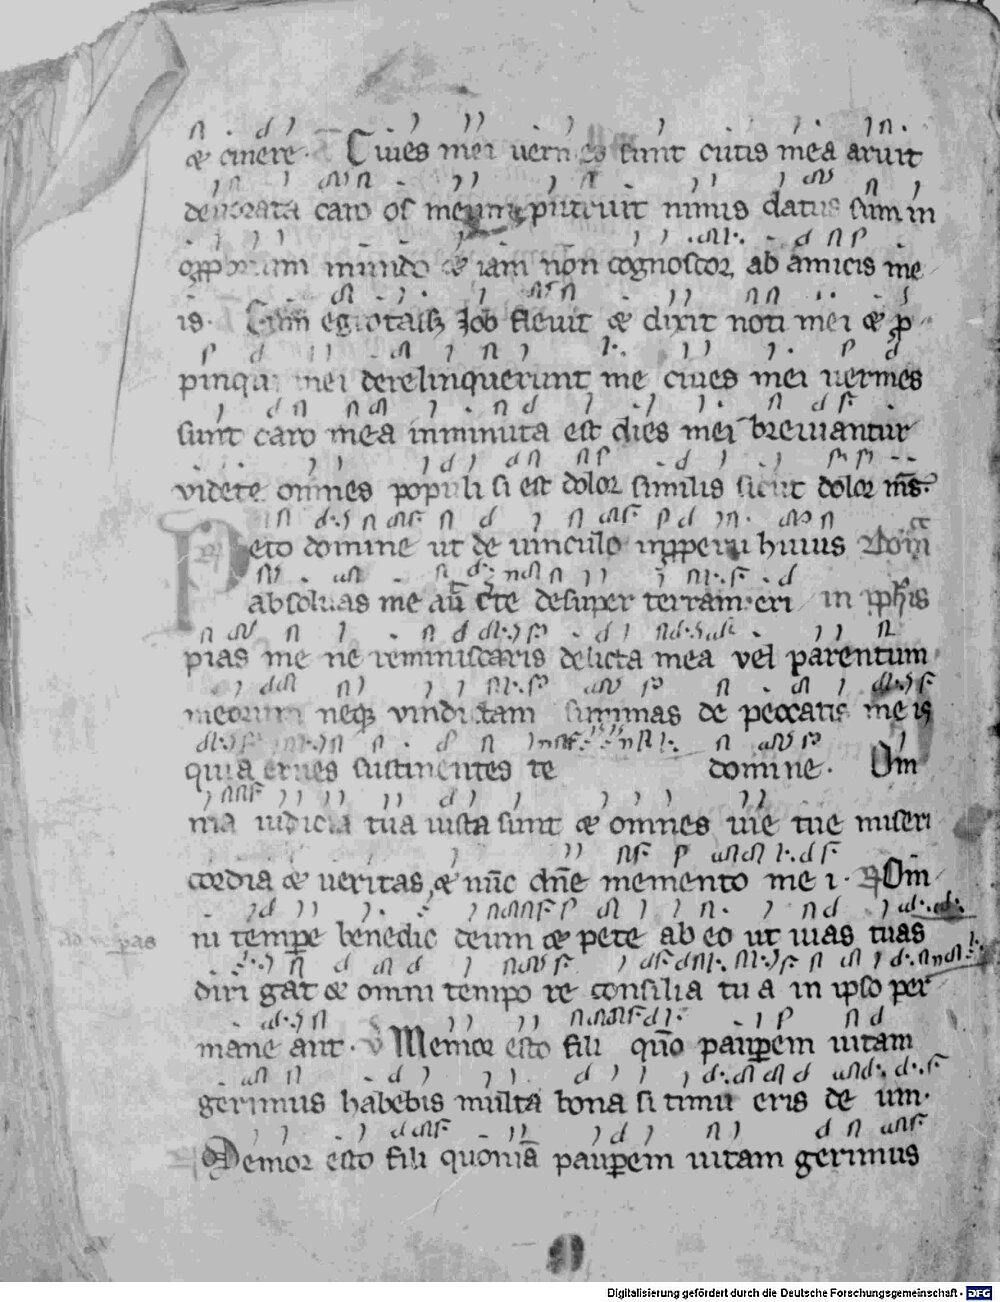 & cinere. Ciues mei vermes sunt cutis mea aruit
deuorata caro os meum putruit nimis datus sum in
mundo & iam non cognoscor ab amicis me
is. Cum egrotass& Iob fleuit & dixit noti mei & ꝓ
pinqui mei derelinquerunt me ciues mei vermes
sunt caro mea inminuta est dies mei breuiantur
videte omnes populi si est dolor similis sicut dolor ms̄.
Peto domine ut de uinculo inꝓperii huius
absoluas me aūt certe desuper terram eri in
pias me ne reminiscaris delicta mea vel parentum
meorum neqꝫ vindictam summas de peccatis meis
quia erues sustinentes te domine. Om
nia iudicia tua iusta sunt & omnes uie tue miseri
cordia & ueritas, & nūc dn̄e memento mei. Om
ni tempore benedic deum & pete ab eo ut uias tuas
diri gat & omni tempo re consilia tu a in ipso per
mane ant. V Memor esto fili quō pauꝑem uitam
gerimus habebis multa bona si timu eris de um.
Memor esto fili quoniā pauꝑem uitam gerimus
Digitalisierung gefördert durch die Deutsche Forschungsgemeinschaft - DFG